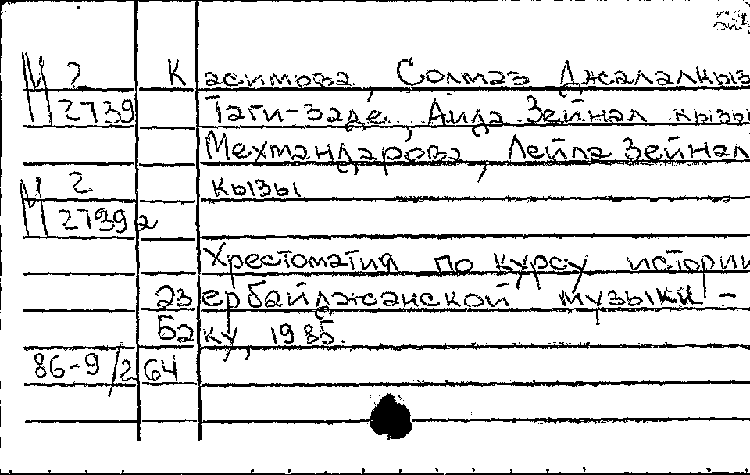 М 2 Касимова, Солмаз Джалалкыз
М 2739 Таги-заде, Аида Зейнал кызы
Мехмандарова, Лейла Зейнал
М 2 кызы
М 2739а
Хрестоматия по курсу истории
азербайджанской музыки -
Баку, 1985.
86-9/264